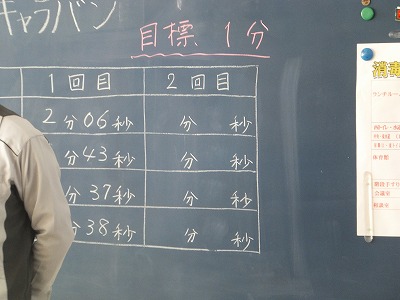 キャラバン
目標 1分
1回目 2回目
2分06秒 分 秒
分43秒 分 秒
分37秒 分 秒
分38秒 分 秒
消毒
ランチルーム
体育館
会議室
相談室